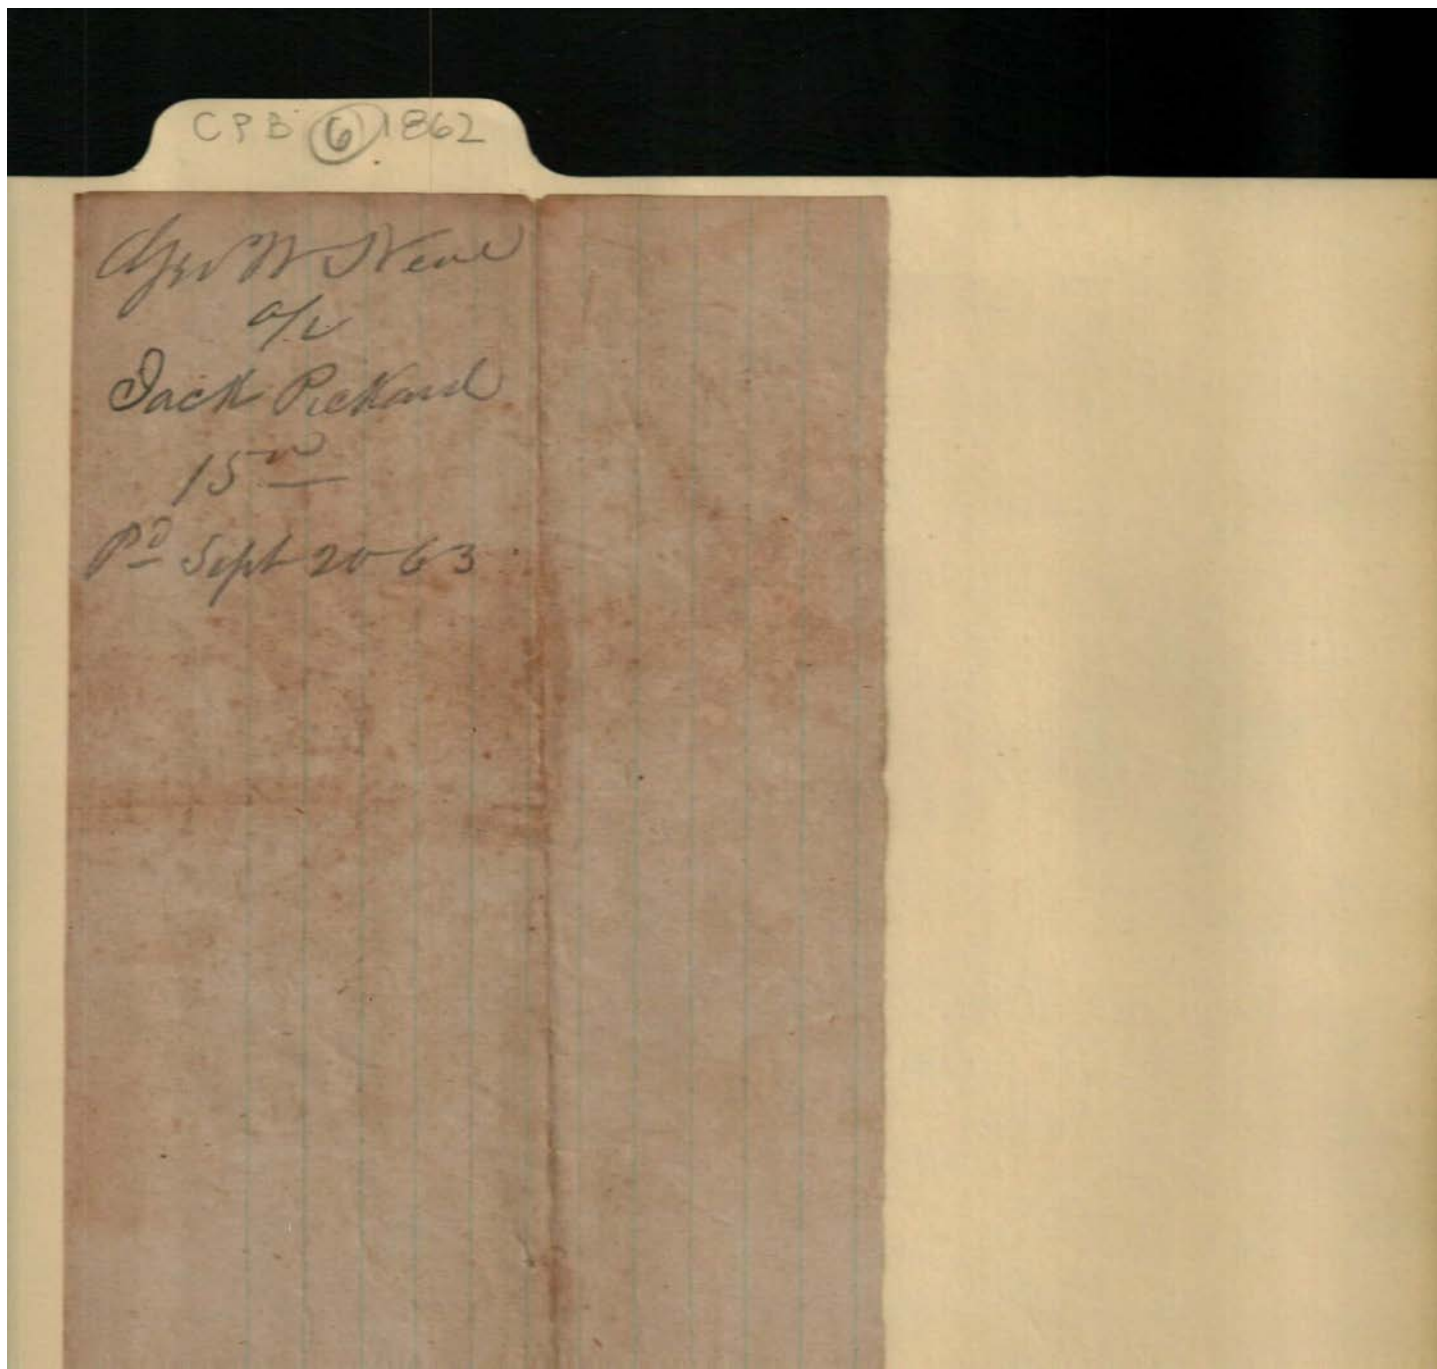 CPB 6 1862
Geo W Neal
a/c
Jack Pickard
15 00
Pd Sept 20 63